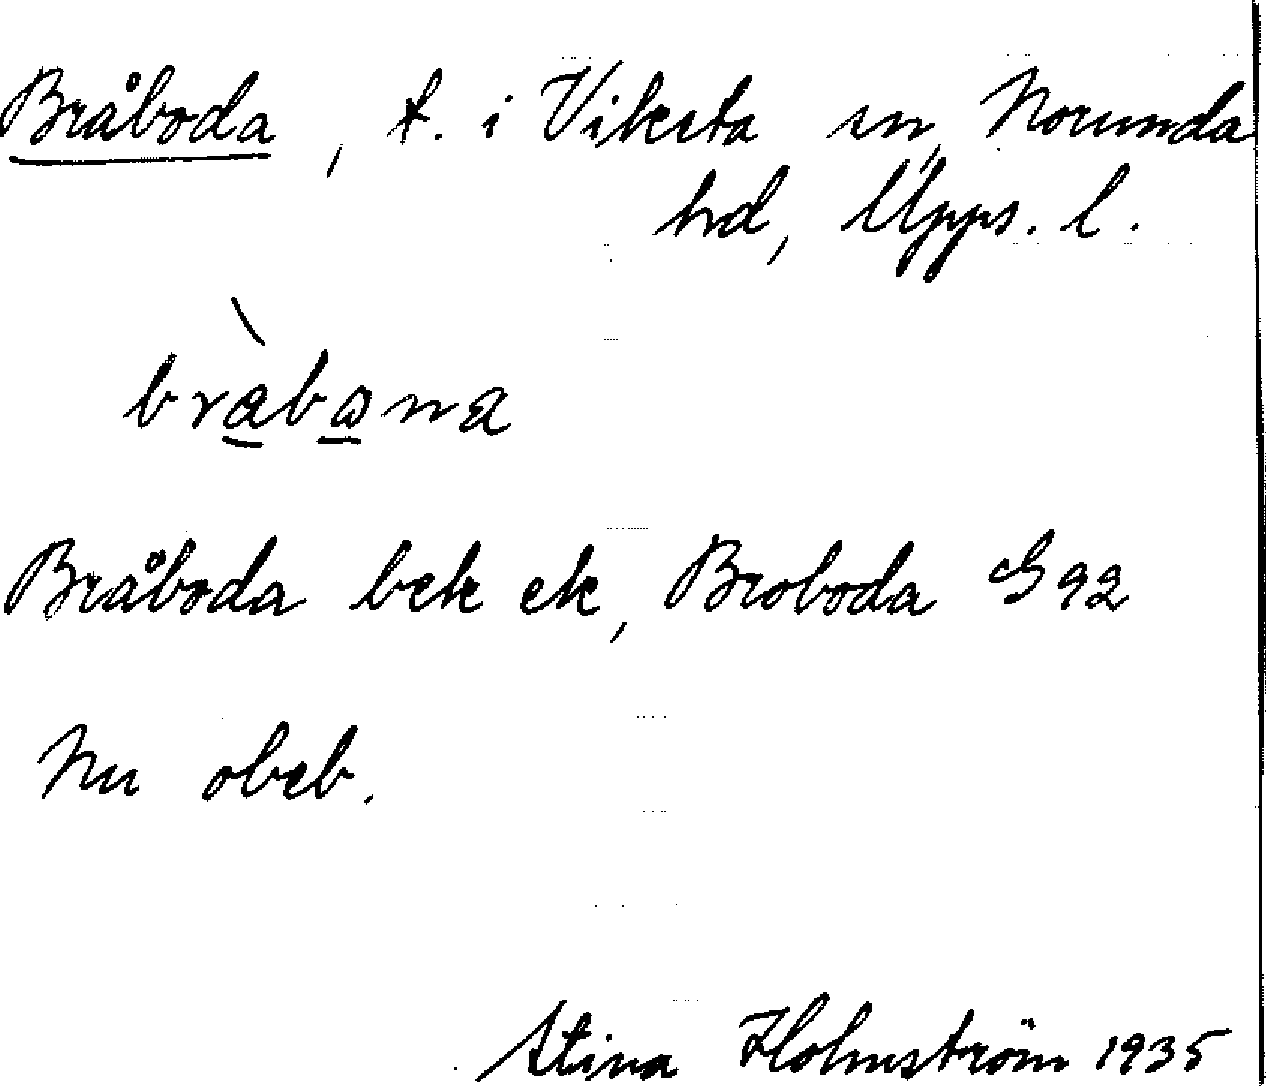 Bråboda, t. i Viksta sn, Norunda
hd, Upps. l.
Bråboda bek ek, Broboda G 92
Nu obeb.
Stina Holmström 1935